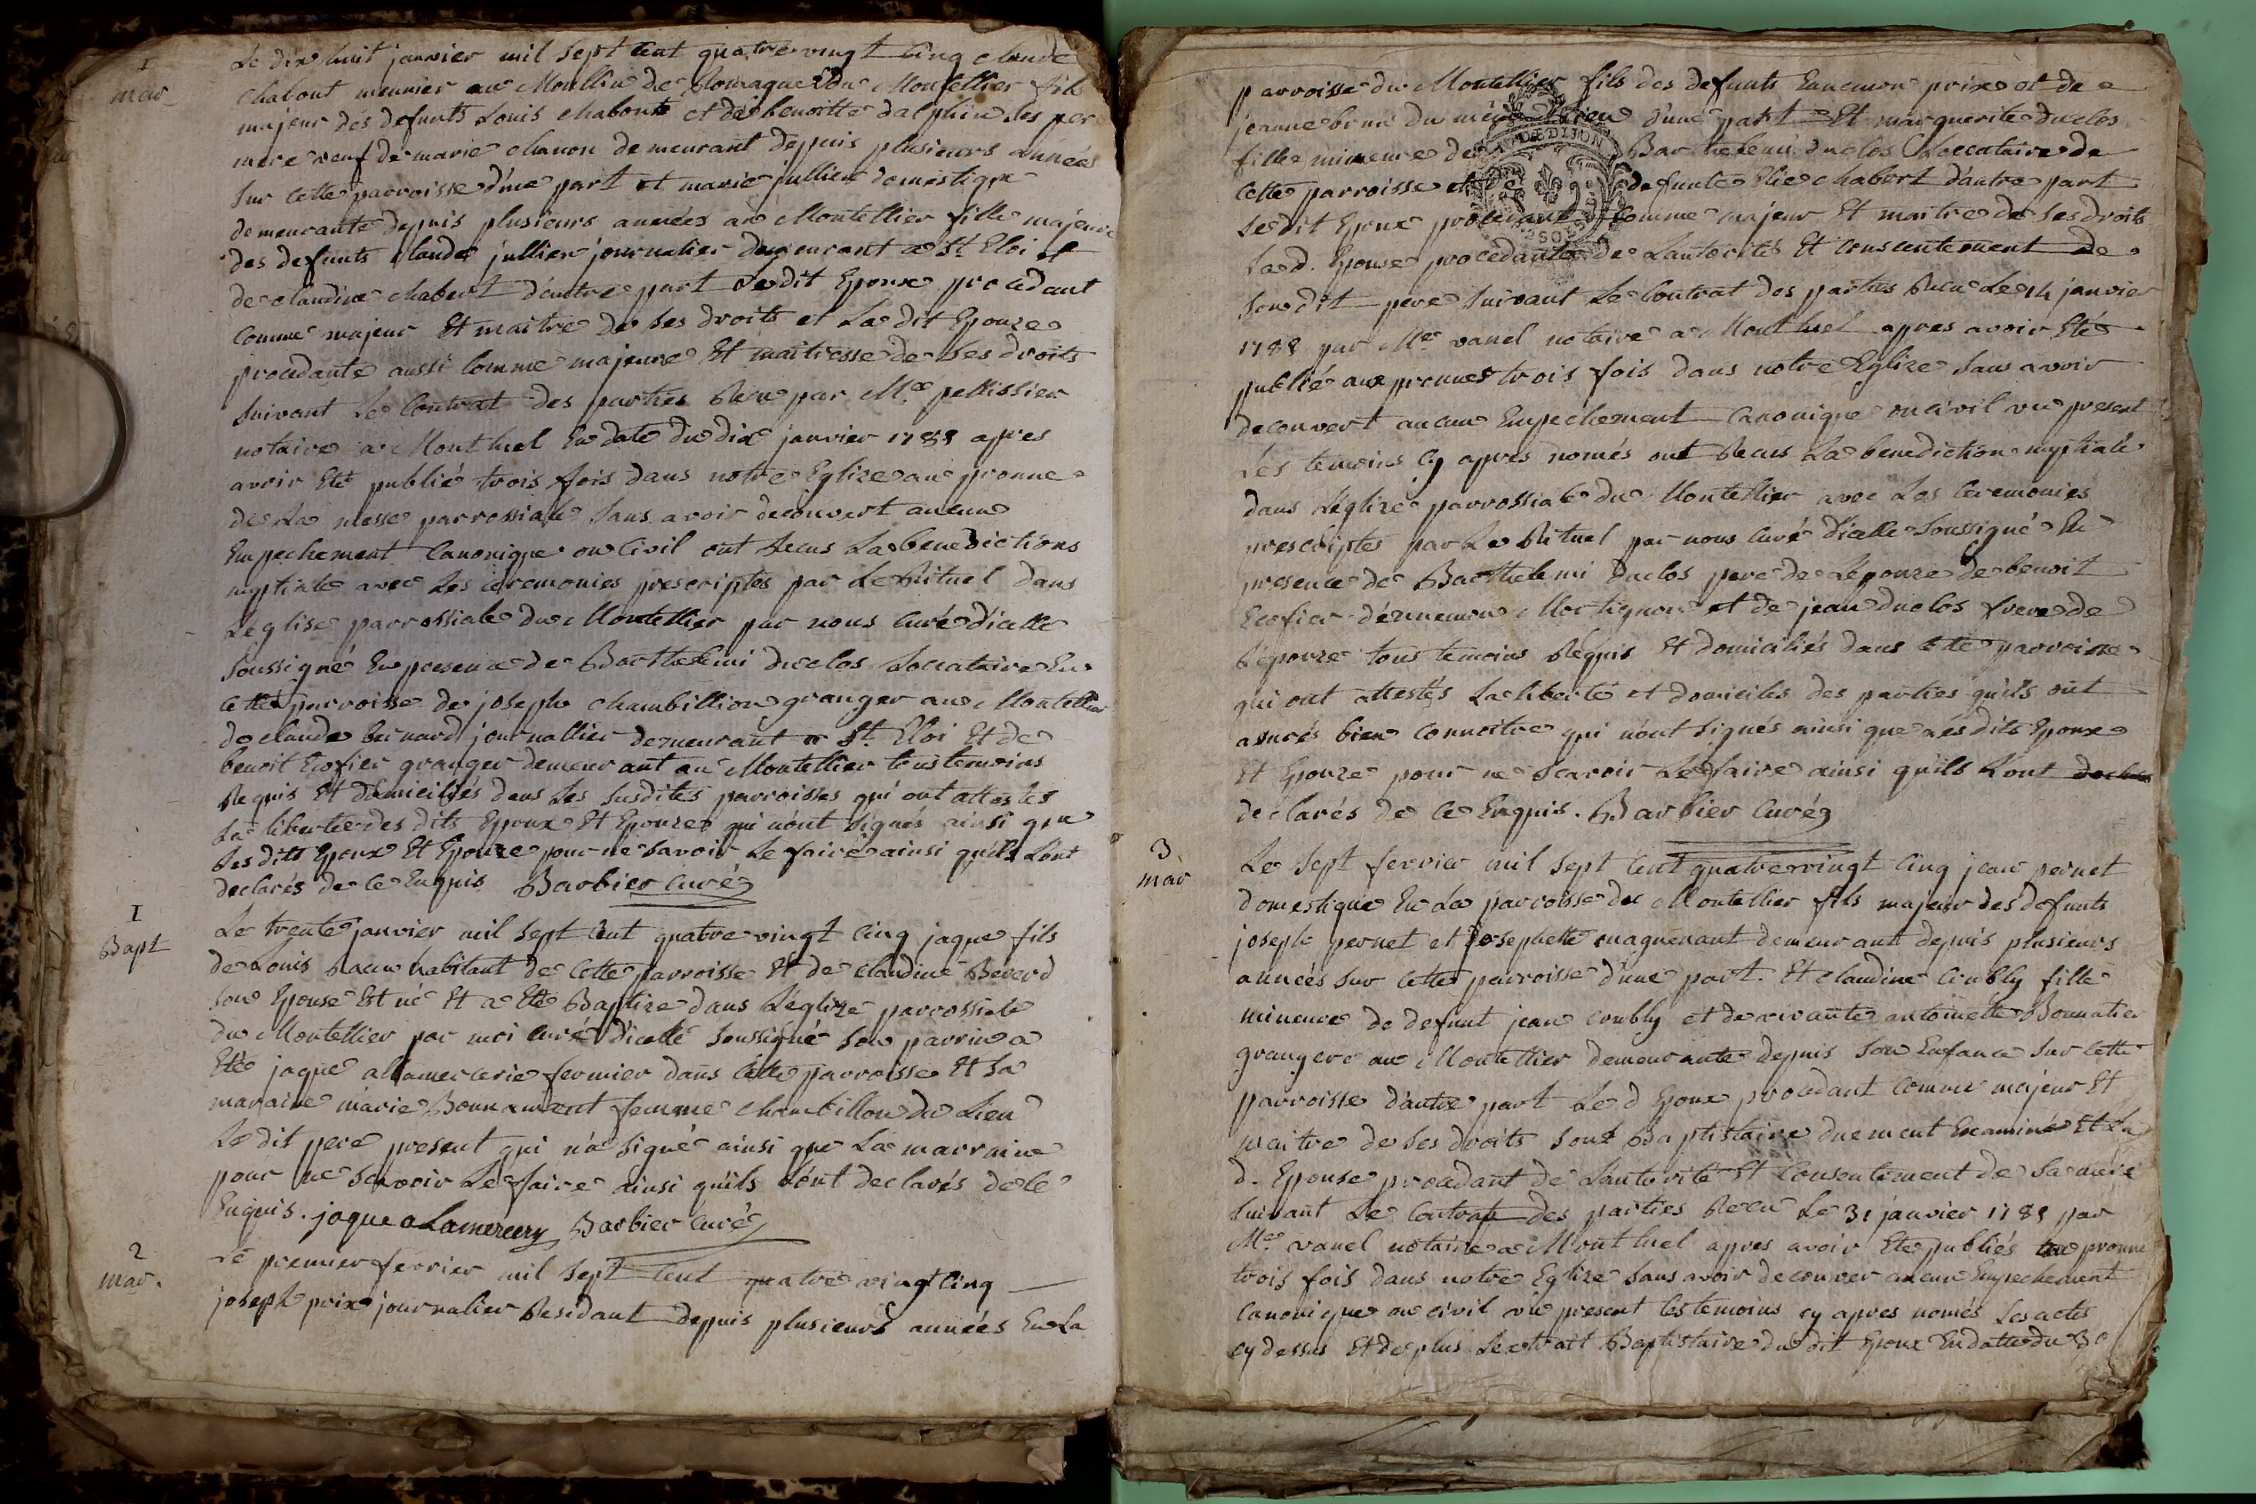 1
mar
Le dix huit janvier mil sept cent quatre vingt cinq claude
chabout meunier au Moullin de Romagueu du Montellier fils
majeur des defunts Louis chaboute et de benoitte dalphin ses per
mere veuf de marie chanon demeurant depuis plusieurs années
Sur cette parroisse d'une part et marie jullien domestique
demeurante depuis plusieurs années au Montellier fille majeure
des defunts claude jullien journalier demeurant a St Eloi et
de claudine chabert d'autre part Ledit Epoux procedant
comme majeur Et maitre de ses droits et La dit Epouze
procedante aussi comme majeure Et maitresse de ses droits
suivant Le Contrat des parties Recu par Me. pellissier
notaire a Montluel En date du dix janvier 1785 apres
avoir Eté publié trois fois dans notre Eglize au pronne
de La messe parrossiale sans avoir decouvert aucun
Empechement Canonique ou Civil ont Recus La benedictions
nuptiale avec Les ceremonies prescriptes par Le Rituel dans
L'eglise parrossiale du Montellier par nous curé d'icelle
soussigné En presence de Barthelemi duclos Loccataire En
cette parroisse de joseph chambillion granger au Montellier
de claude bernard journallier demeurant a St. Eloi Et de
benoit Ecofier granger demeurant au Montellier tous temoins
Requis Et domiciliés dans Les susdites parroisses qui ont attestés
La liberté des dits Epoux Et Epouze qui n'ont signés ainsi que
Les dits Epoux Et Epouze pour ne savoir Le faire ainsi qu'ils L'ont
declarés de ce Enquis Barbier curé
1
Bapt
Le trente janvier mil sept cent quatre vingt cinq jaque fils
de Louis habitant de cette parroisse Et de claudine Beverd
son Epouse Est né Et a Eté Baptize dans L'eglize parrossiale
du Montellier par moi curé d'icelle soussigné son parrin a
Eté jaque alamercerie fermier dans cette parroisse Et sa
maraine marie Bonnament femme chambillon du Lieu
Le dit pere present qui n'a signé ainsi que La marraine
pour ne scavoir Le faire ainsi qu'ils L'ont declarés de ce
Enquis. jaque aLamercery Barbier curé
2
mar.
Le premier ferrier mil sept cent quatre vingt cinq
joseph prix journalier Residant depuis plusieurs années En La
parroisse du Montellier fils des defunts Ennemon prix et de
jeanne brun du même Lieu d'une part Et marguerite duclos
fille mineure de Barthelemi duclos Loccataire de
cette parroisse et de defunte Elie chabert d'autre part
Ledit Epoux procedant comme majeur Et maitre de ses droits
La d. Epouse procedante de L'autorité Et conscentement de
son dit pere suivant Le Contrat des parties Recu Le 14 janvier
1785 par Me vanel notaire a Montluel apres avoir Eté
publié aux pronnes trois fois dans notre Eglize sans avoir
decouvert aucun Empechement Canonique ou civil vu present
Les temoins cy apres només ont Recus La benediction nuptiale
dans L'eglize parrossiale du Montellier avec Les ceremonies
prescriptes par Le Rituel par nous curé d'icelle soussigné En
presence de Barthelemi duclos pere de L'epouze de benoit
Ecofier d'ennemon Martignon et de jean duclos frere de
L'epouze tous temoins Requis Et domiciliés dans cette parroisse
qui ont attestés La liberté et domiciles des parties qu'ils ont
assurés bien connoitre qui n'ont signés ainsi que Les dits Epoux
Et Epouze pour ne scavoir Le faire ainsi qu'ils L'ont
declarés de ce Enquis. Barbier curé
3
mar
Le sept ferrier mil sept cent quatre vingt cinq jean pernet
domestique En La parroisse du Montellier fils majeur des defunts
joseph pernet et josephette maguenant demeurant depuis plusieurs
années sur cette parroisse d'une part. Et claudine Coubly fille
mineure de defunt jean coubly et de vivante antoinette Bonnatier
grangere au Montellier demeurante depuis son Enfance sur cette
parroisse d'autre part Le d Epoux procedant comme majeur Et
maitre de ses droits sous Baptistaire duement Examiné Et La
d. Epouse procedant de L'autorité Et Consentement de sa mere
suivant Le Contrat des parties Recu Le 31 janvier 1785 par
Me. vanel notaire a Montluel apres avoir Eté publiés au pronne
trois fois dans notre Eglize sans avoir decouver aucun Empechement
Canonique ou civil vu present les temoins cy apres només Les actes
cy dessus Et de plus L'extrait Baptistaire du dit Epoux En datte du 30